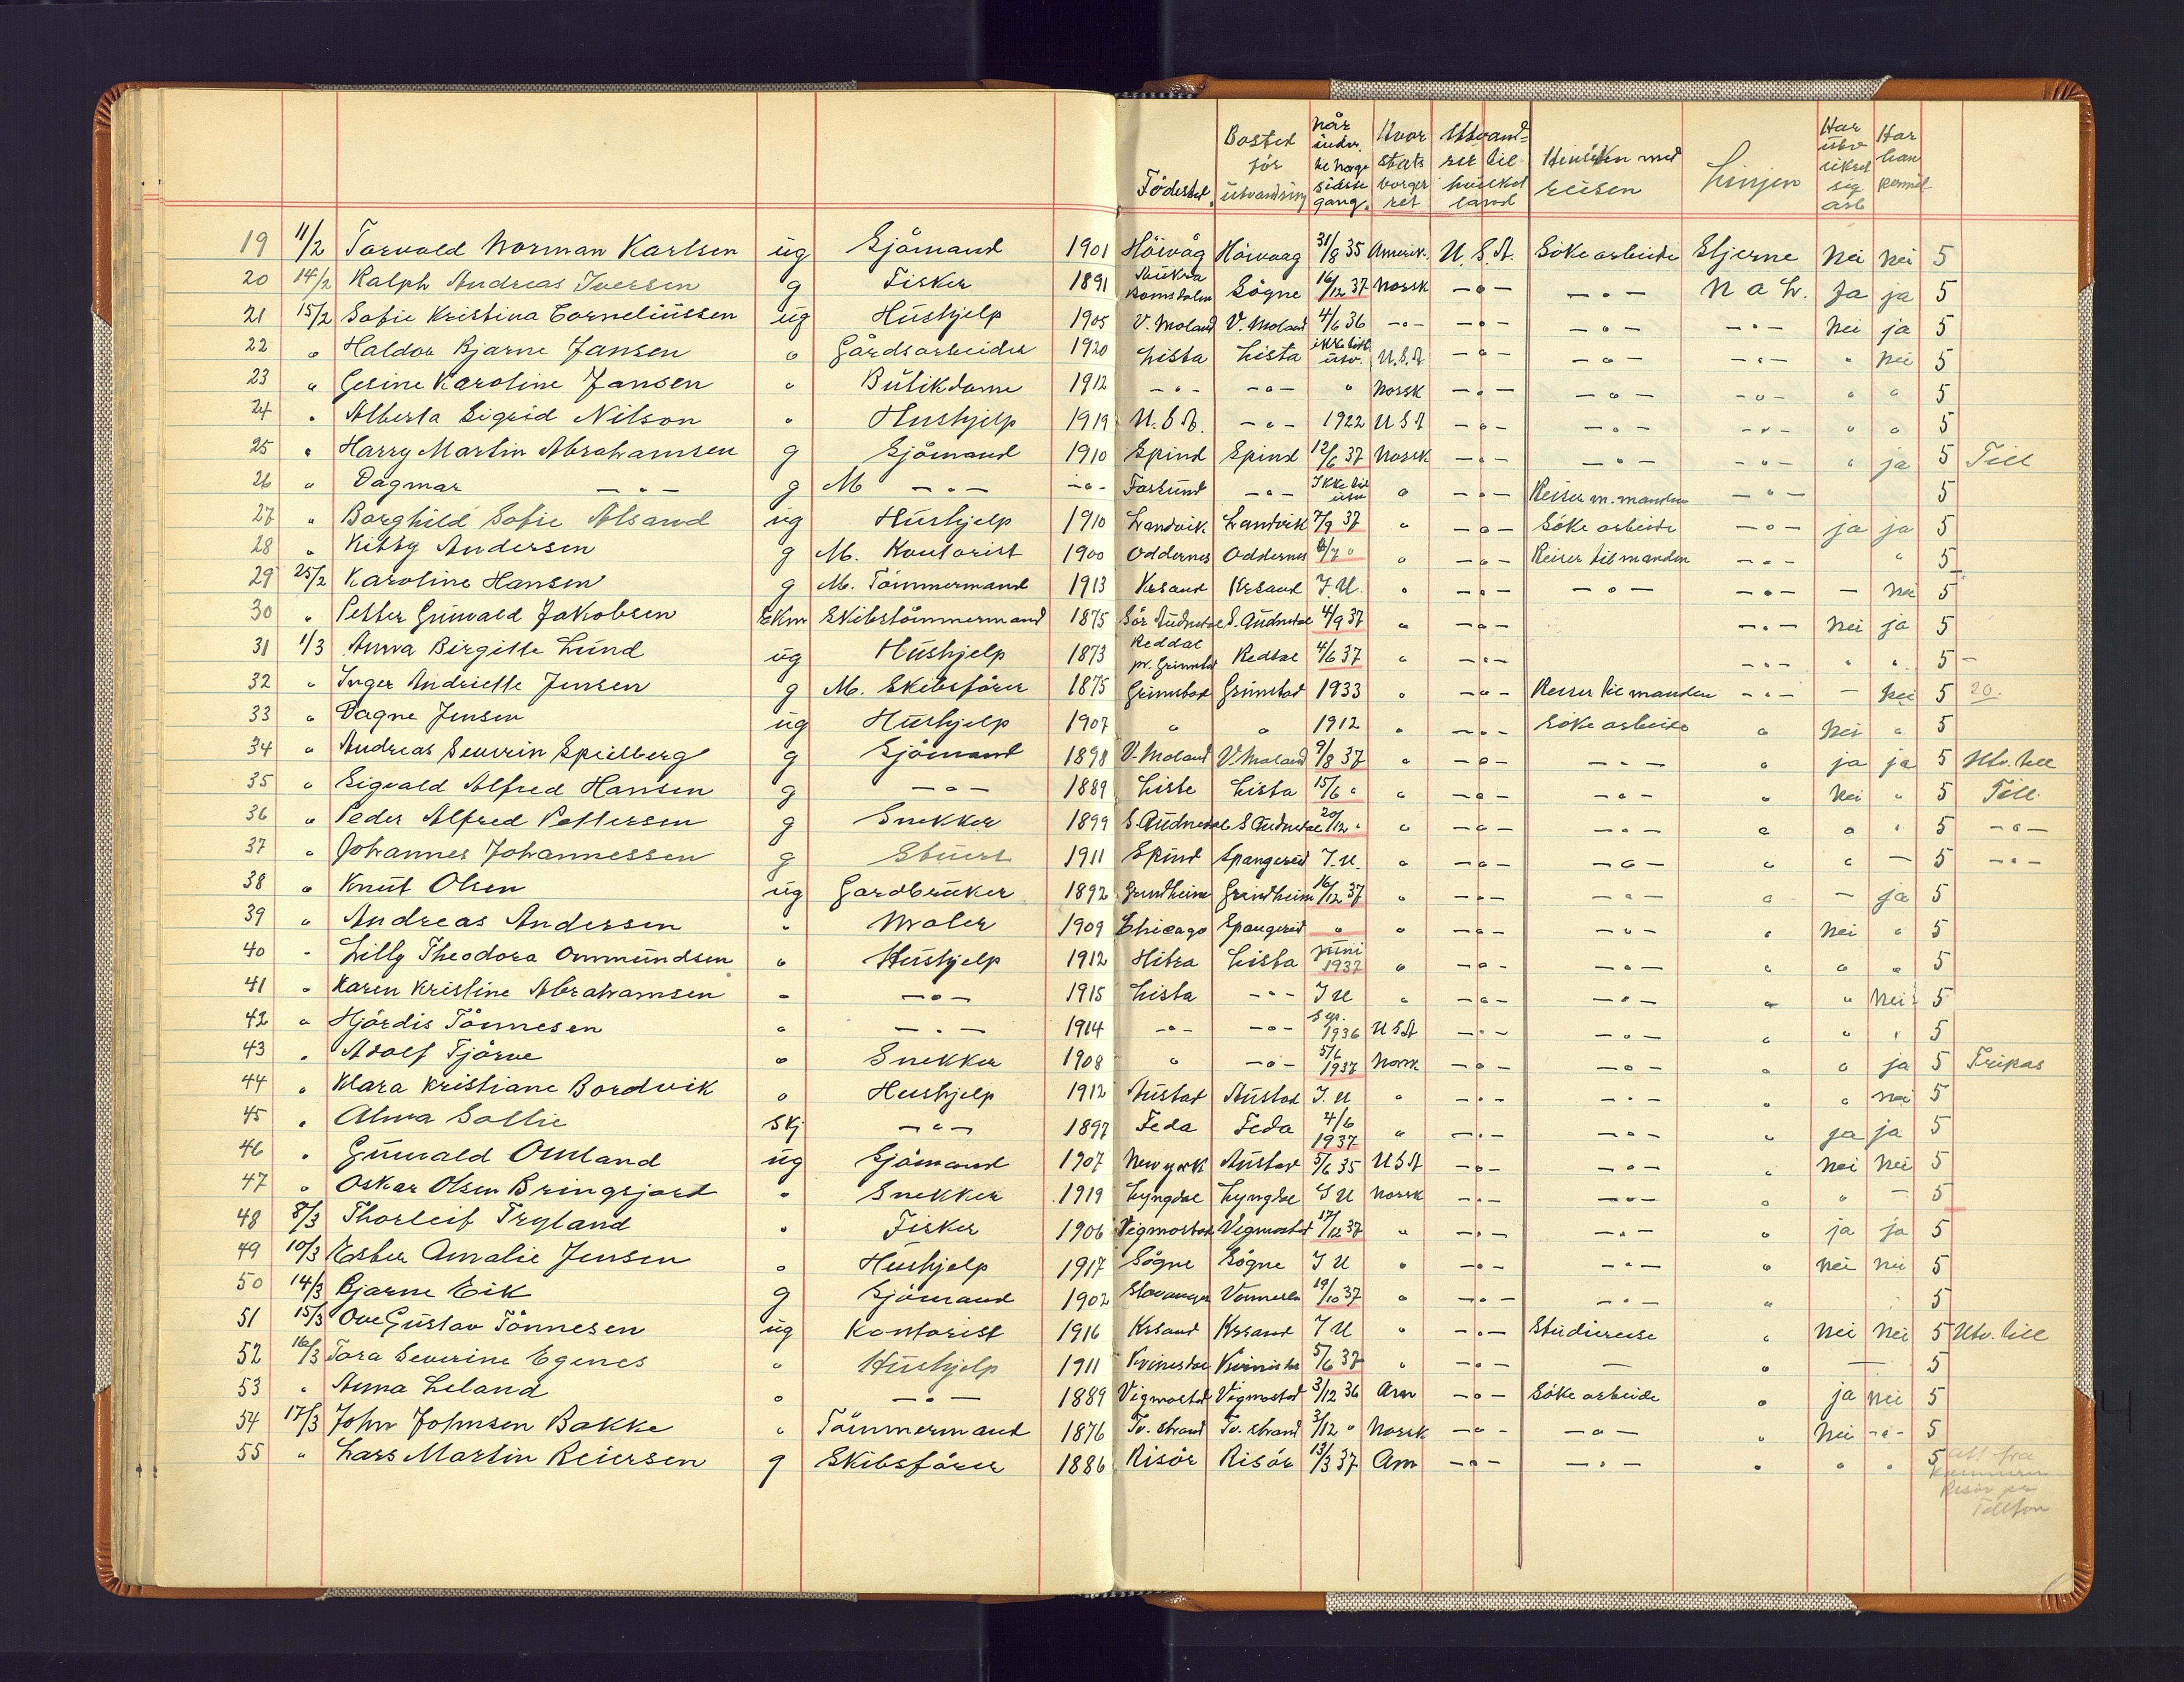 Födested Bosted för utvandring når sidste gang Hvor stats borger ret Utvandret til hvilket land Hensikten med reisen Linjen Har utv. sikret sig arb Har han
19 11/2 Torvald Norman Karlsen ug Sjömand 1901 Höivåg Höivaag 31/8 35 Amerik. U.S.A. Söke arbeide Stjerne Nei Nei 5
20 14/2 Ralph Andreas Iversen g Fisker 1891 Aukra Romsdalen Sögne 16/12 37 Norsk -"- -"- N a L. Ja ja 5
21 15/2 Sofie Kristina Corneliussen ug Hushjelp 1905 V. Moland V. Moland 4/6 36 -"- -"- -"- -"- Nei ja 5
22 " Haldor Bjarne Jansen " Gårdsarbeider 1920 Lista Lista ikke tidl. utv. U.S.A -"- -"- -"- " Nei 5
23 " Gesine Karoline Jansen " Butikdame 1912 -"- -"- " Norsk -"- -"- -"- " " 5
24 " Alberta Sigrid Nilson " Hushjelp 1919 U.S.A. -"- 1922 USA -"- -"- -"- " " 5
25 " Harry Martin Abrahamsen g Sjömand 1910 Spind Spind 12/6 37 Norsk -"- -"- -"- " ja 5 Till
26 " Dagmar -"- g M -"- -"- Farsund -"- Ikke tid utv " -"- Reiser m. manden -"- 5
27 " Borghild Sofie Alsand ug Hushjelp 1910 Landvik Landvik 7/9 37 " -"- Söke arbeide -"- ja ja 5
28 " Kitty Andersen g M. Kontorist 1900 Oddernes Oddernes 6/7 " " -"- Reiser til manden -"- " 5
29 25/2 Karoline Hansen g M. Tömmermand 1913 Krsand Krsand I.U. " -"- -"- -"- - nei 5
30 " Petter Gunvald Jakobsen Ekm Skibstömmermand 1875 Sör Audnedal S. Audnedal 4/9 37 " -"- -"- Nei ja 5
31 1/3 Anna Birgitte Lund ug Hushjelp 1873 Reddal pr. Grimstad Reddal 4/6 37 " -"- -"- " " 5 -
32 " Inger Andriette Jensen g M. Skibsförer 1875 Grimstad Grimstad 1933 " -"- Reiser til manden -"- - Nei 5 20.
33 " Dagne Jensen ug Hushjelp 1907 " " 1912 " -"- Söke arbeide " Nei " 5
34 " Andreas Severin Speilberg g Sjömand 1898 V. Moland V Moland 9/8 37 " -"- -"- " ja ja 5 Utv. till
35 " Sigvald Alfred Hansen g -"- 1889 Liste Lista 15/6 " " -"- -"- " Nei " 5 Till.
36 " Peder Alfred Pettersen g Snekker 1899 S. Audnedal S Audnedal 20/12 " " -"- -"- " " " 5 -"-
37 " Johannes Johannessen g Stuert 1911 Spind Spangereid I.U. " -"- -"- " " - 5 -"-
38 " Knut Olsen ug Gardbruker 1892 Grindheim Grindheim 16/12 37 " -"- -"- " - ja 5
39 " Andreas Andersen " Maler 1909 Chicago Spangereid " " -"- -"- " Nei " 5
40 " Lilly Theodora Ommundsen " Hushjelp 1912 Hitra Lista juni 1937 " -"- -"- " " " 5
41 " Karen Kristine Abrahamsen " -"- 1915 Lista -"- I U " -"- -"- " " Nei 5
42 " Hjördis Tönnesen " -"- 1914 -"- -"- 1936 USA -"- -"- " " " 5
43 " Adolf Tjörve " Snekker 1908 " -"- 5/6 1937 Norsk -"- -"- " " ja 5 Fripas
44 " Klara Kristiane Bordvik " Hushjelp 1912 Austad Austad I.U " -"- -"- " " nei 5
45 " Alma Sollie skj -"- 1897 Feda Feda 4/6 1937 " -"- -"- " ja ja 5
46 " Gunvald Omland ug Sjömand 1907 New york Austad 5/6 35 USA -"- -"- " Nei Nei 5
47 " Oskar Olsen Bringsjord " Snekker 1919 Lyngdal Lyngdal I U Norsk -"- -"- " " - 5
48 8/3 Thorleif Tryland " Fisker 1906 Vigmostad Vigmostad 17/12 37 " -"- -"- " ja ja 5
49 10/3 Ester Amalie Jensen " Hushjelp 1917 Sögne Sögne I U " -"- -"- " Nei Nei 5
50 14/3 Bjarne Eik g Sjömand 1902 Stavanger Vennesla 19/10 37 " -"- -"- " 5
51 15/3 Ove Gustav Tönnesen ug Kontorist 1916 Krsand Krsand I U " -"- Studiereise " Nei Nei 5 Utv. till
52 16/3 Tora Severine Egenes " Hushjelp 1911 Kvinesdal Kvinesdal 5/6 37 " -"- - " - 5
53 " Anna Leland " -"- 1889 Vigmostad Vigmostad 3/12 36 Am -"- Söke arbeide " ja Nei 5
54 17/3 John Johnsen Bakke " Tömmermand 1876 Tv. strand Tv. strand 3/12 " Norsk -"- -"- " Nei -"- 5
55 " Lars Martin Reiersen g Skibsförer 1886 Risör Risör 13/3 37 Am -"- -"- " " " 5 att fra
Risör pr
Telefon